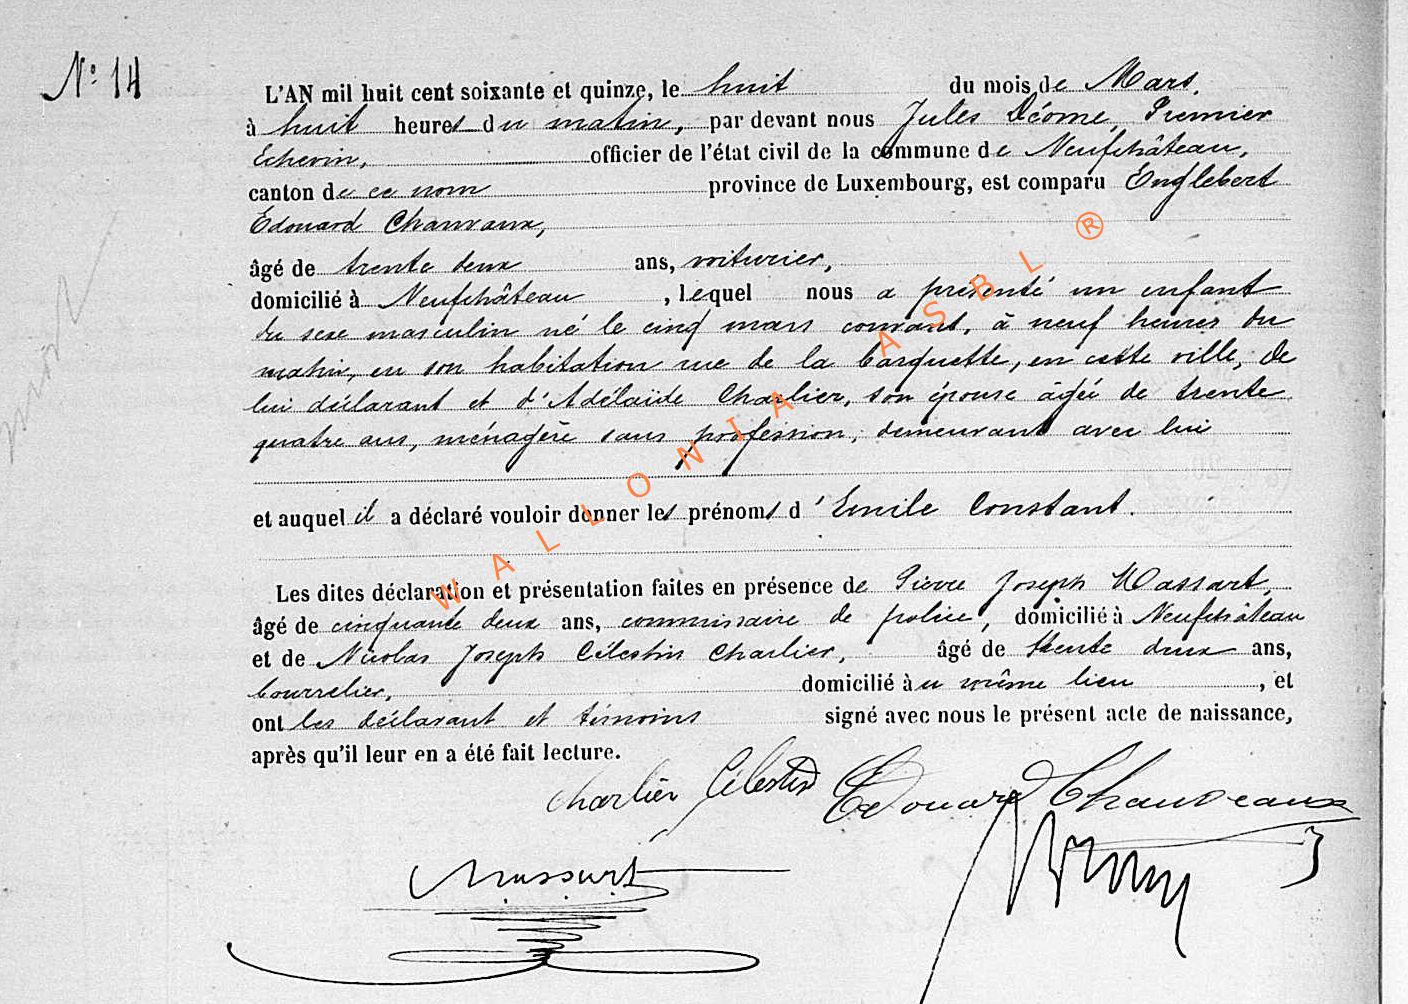 N° 14
L'AN mil huit cent soixante et quinze, le huit du mois de Mars,
à huit heures du matin, par devant nous Jules Déome, Premier
Echevin, officier de l'état civil de la commune de Neufchâteau,
canton de ce nom province de Luxembourg, est comparu Englebert
Edouard Chauvaux,
âgé de trente deux ans, voiturier,
domicilié à Neufchâteau, lequel nous a présenté un enfant
du sexe masculin né le cinq mars courant, à neuf heures du
matin, en son habitation rue de la barquette, en cette ville, de
lui déclarant et d'Adélaïde Charlier, son épouse âgée de trente
quatre ans, ménagère sans profession, demeurant avec lui
et auquel il a déclaré vouloir donner les prénoms d'Emile Constant.
Les dites déclaration et présentation faites en présence de Pierre Joseph Massart,
âgé de cinquante deux ans, commissaire de police, domicilié à Neufchâteau
et de Nicolas Joseph Célestin Charlier, âgé de trente deux ans,
bourrelier, domicilié au même lieu, et
ont les déclarant et témoins signé avec nous le présent acte de naissance,
après qu'il leur en a été fait lecture.
Charlier Célestin Edouard Chauveaux
Massart
WALLONIA ASBL ®